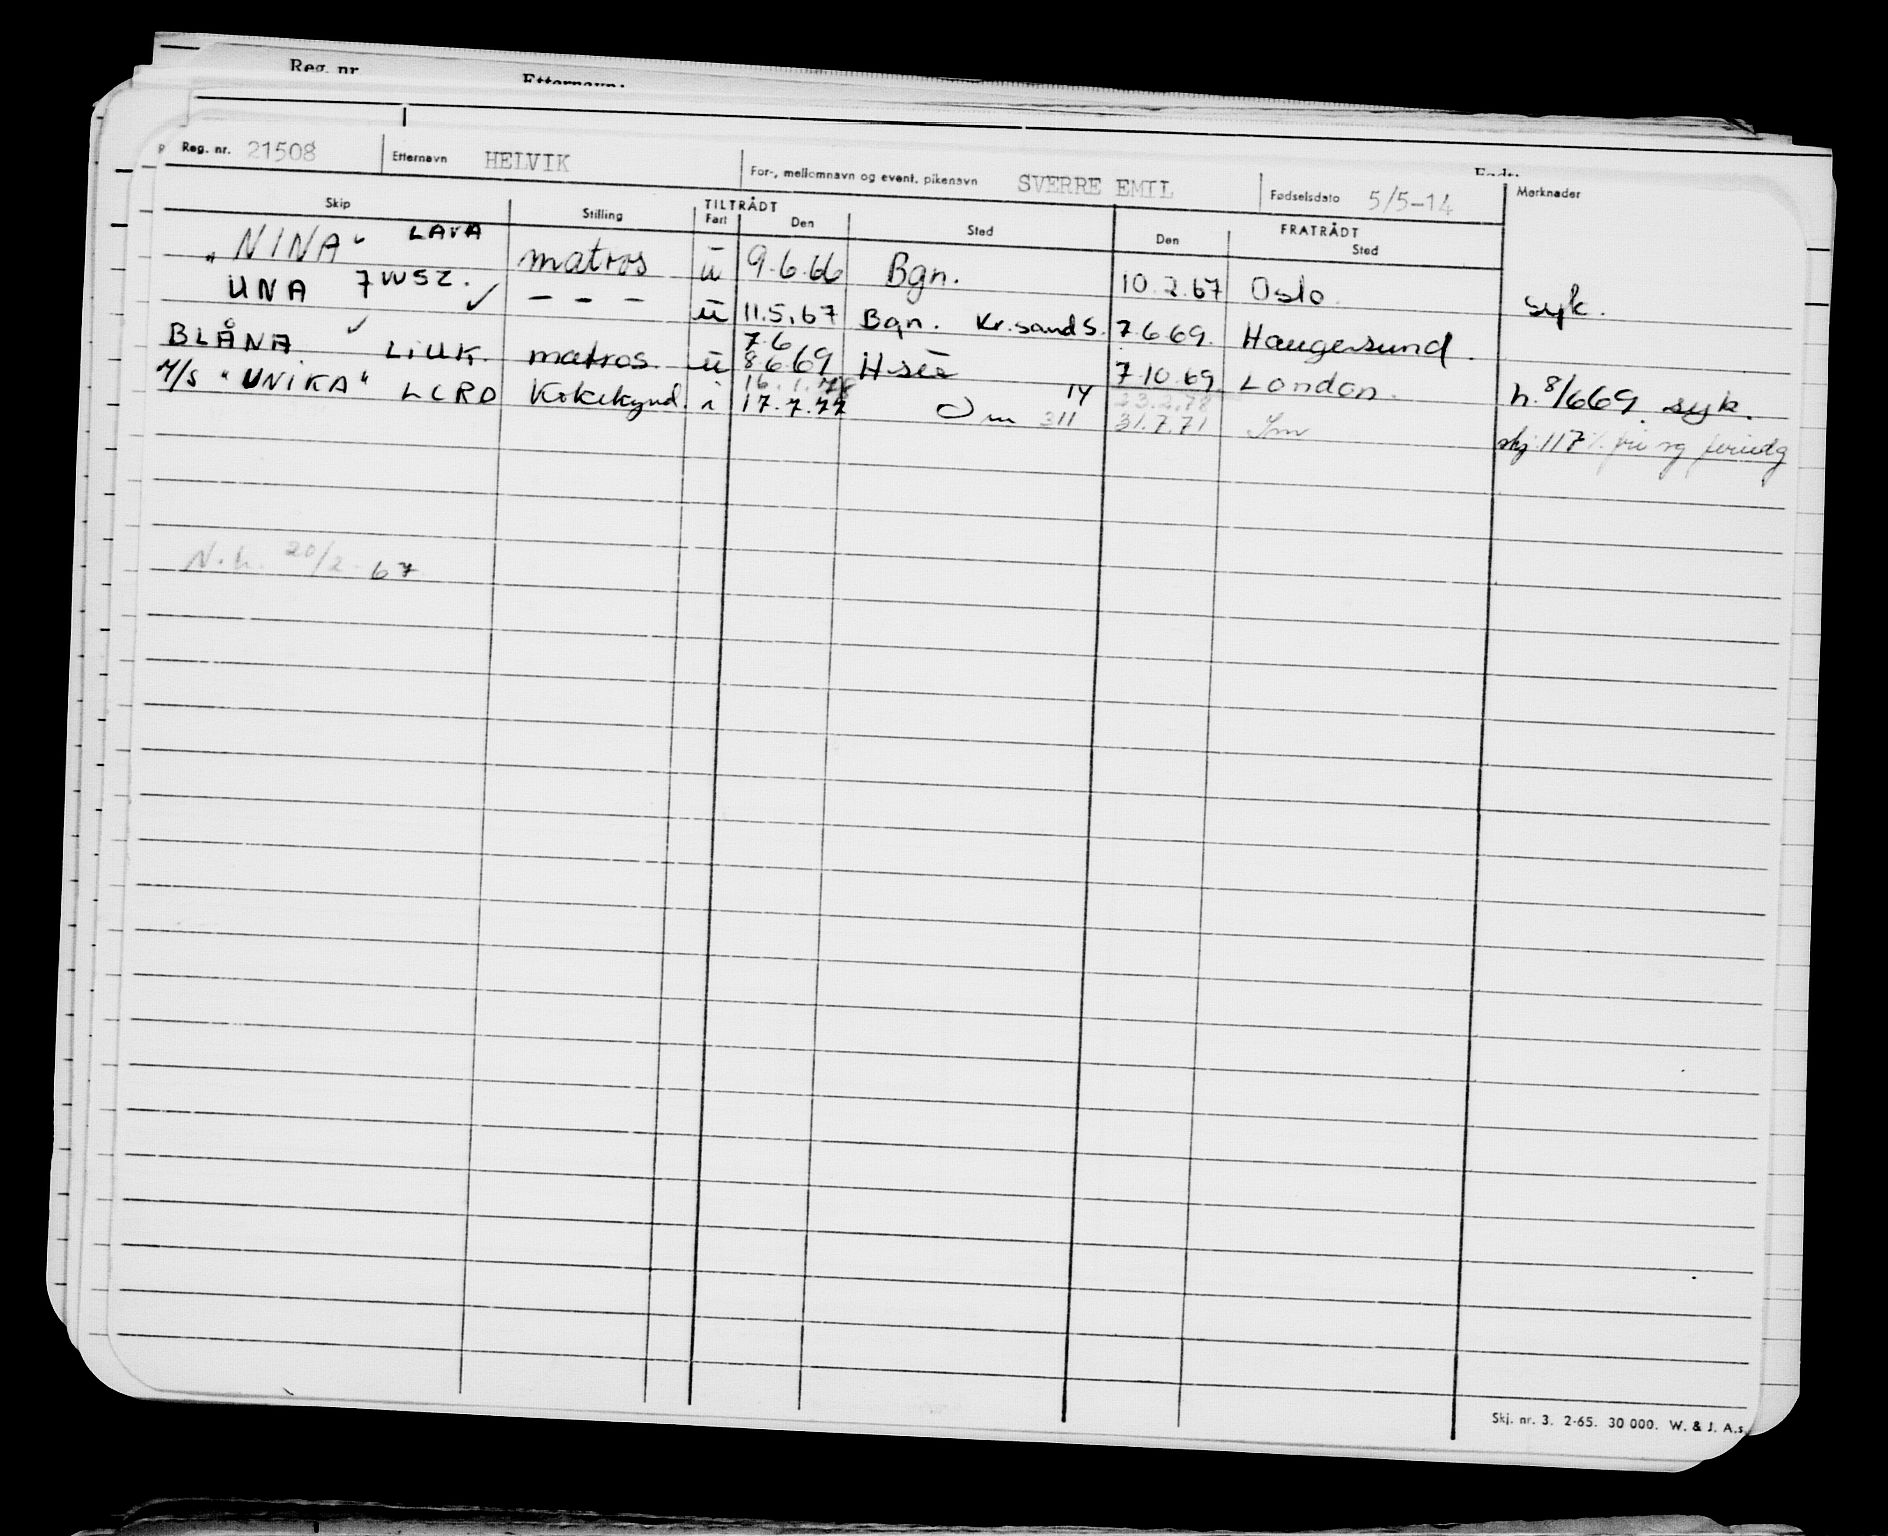 Reg. nr.
Reg. nr. 21508 Etternavn HELVIK For-, mellomnavn og event. pikenavn SVERRE EMIL Fødselsdato 5/5-14 Merknader
Skip Stilling TILTRÅDT FRATRÅDT
Fart Den Sted Den Sted
"NINA" LAVA matros u 9.6.66 Bgn. 10.2.67 Oslo. syk.
UNA JWSZ. ✓ - - - u 11.5.67 Bgn. Kr.sand S. 7.6.69. Haugesund.
7.6
BLÅNA ✓ LIUK. matros. u 8.6.69 7.10.69. London. h. 8/6 69. syk.
16.1.78 14 23.2.78
M/S "UNIKA" LCRD i 17.7.77 311 31.7.71
N.h. 20/2-67
Skj. nr. 3. 2-65. 30 000. W. & J. A.s.